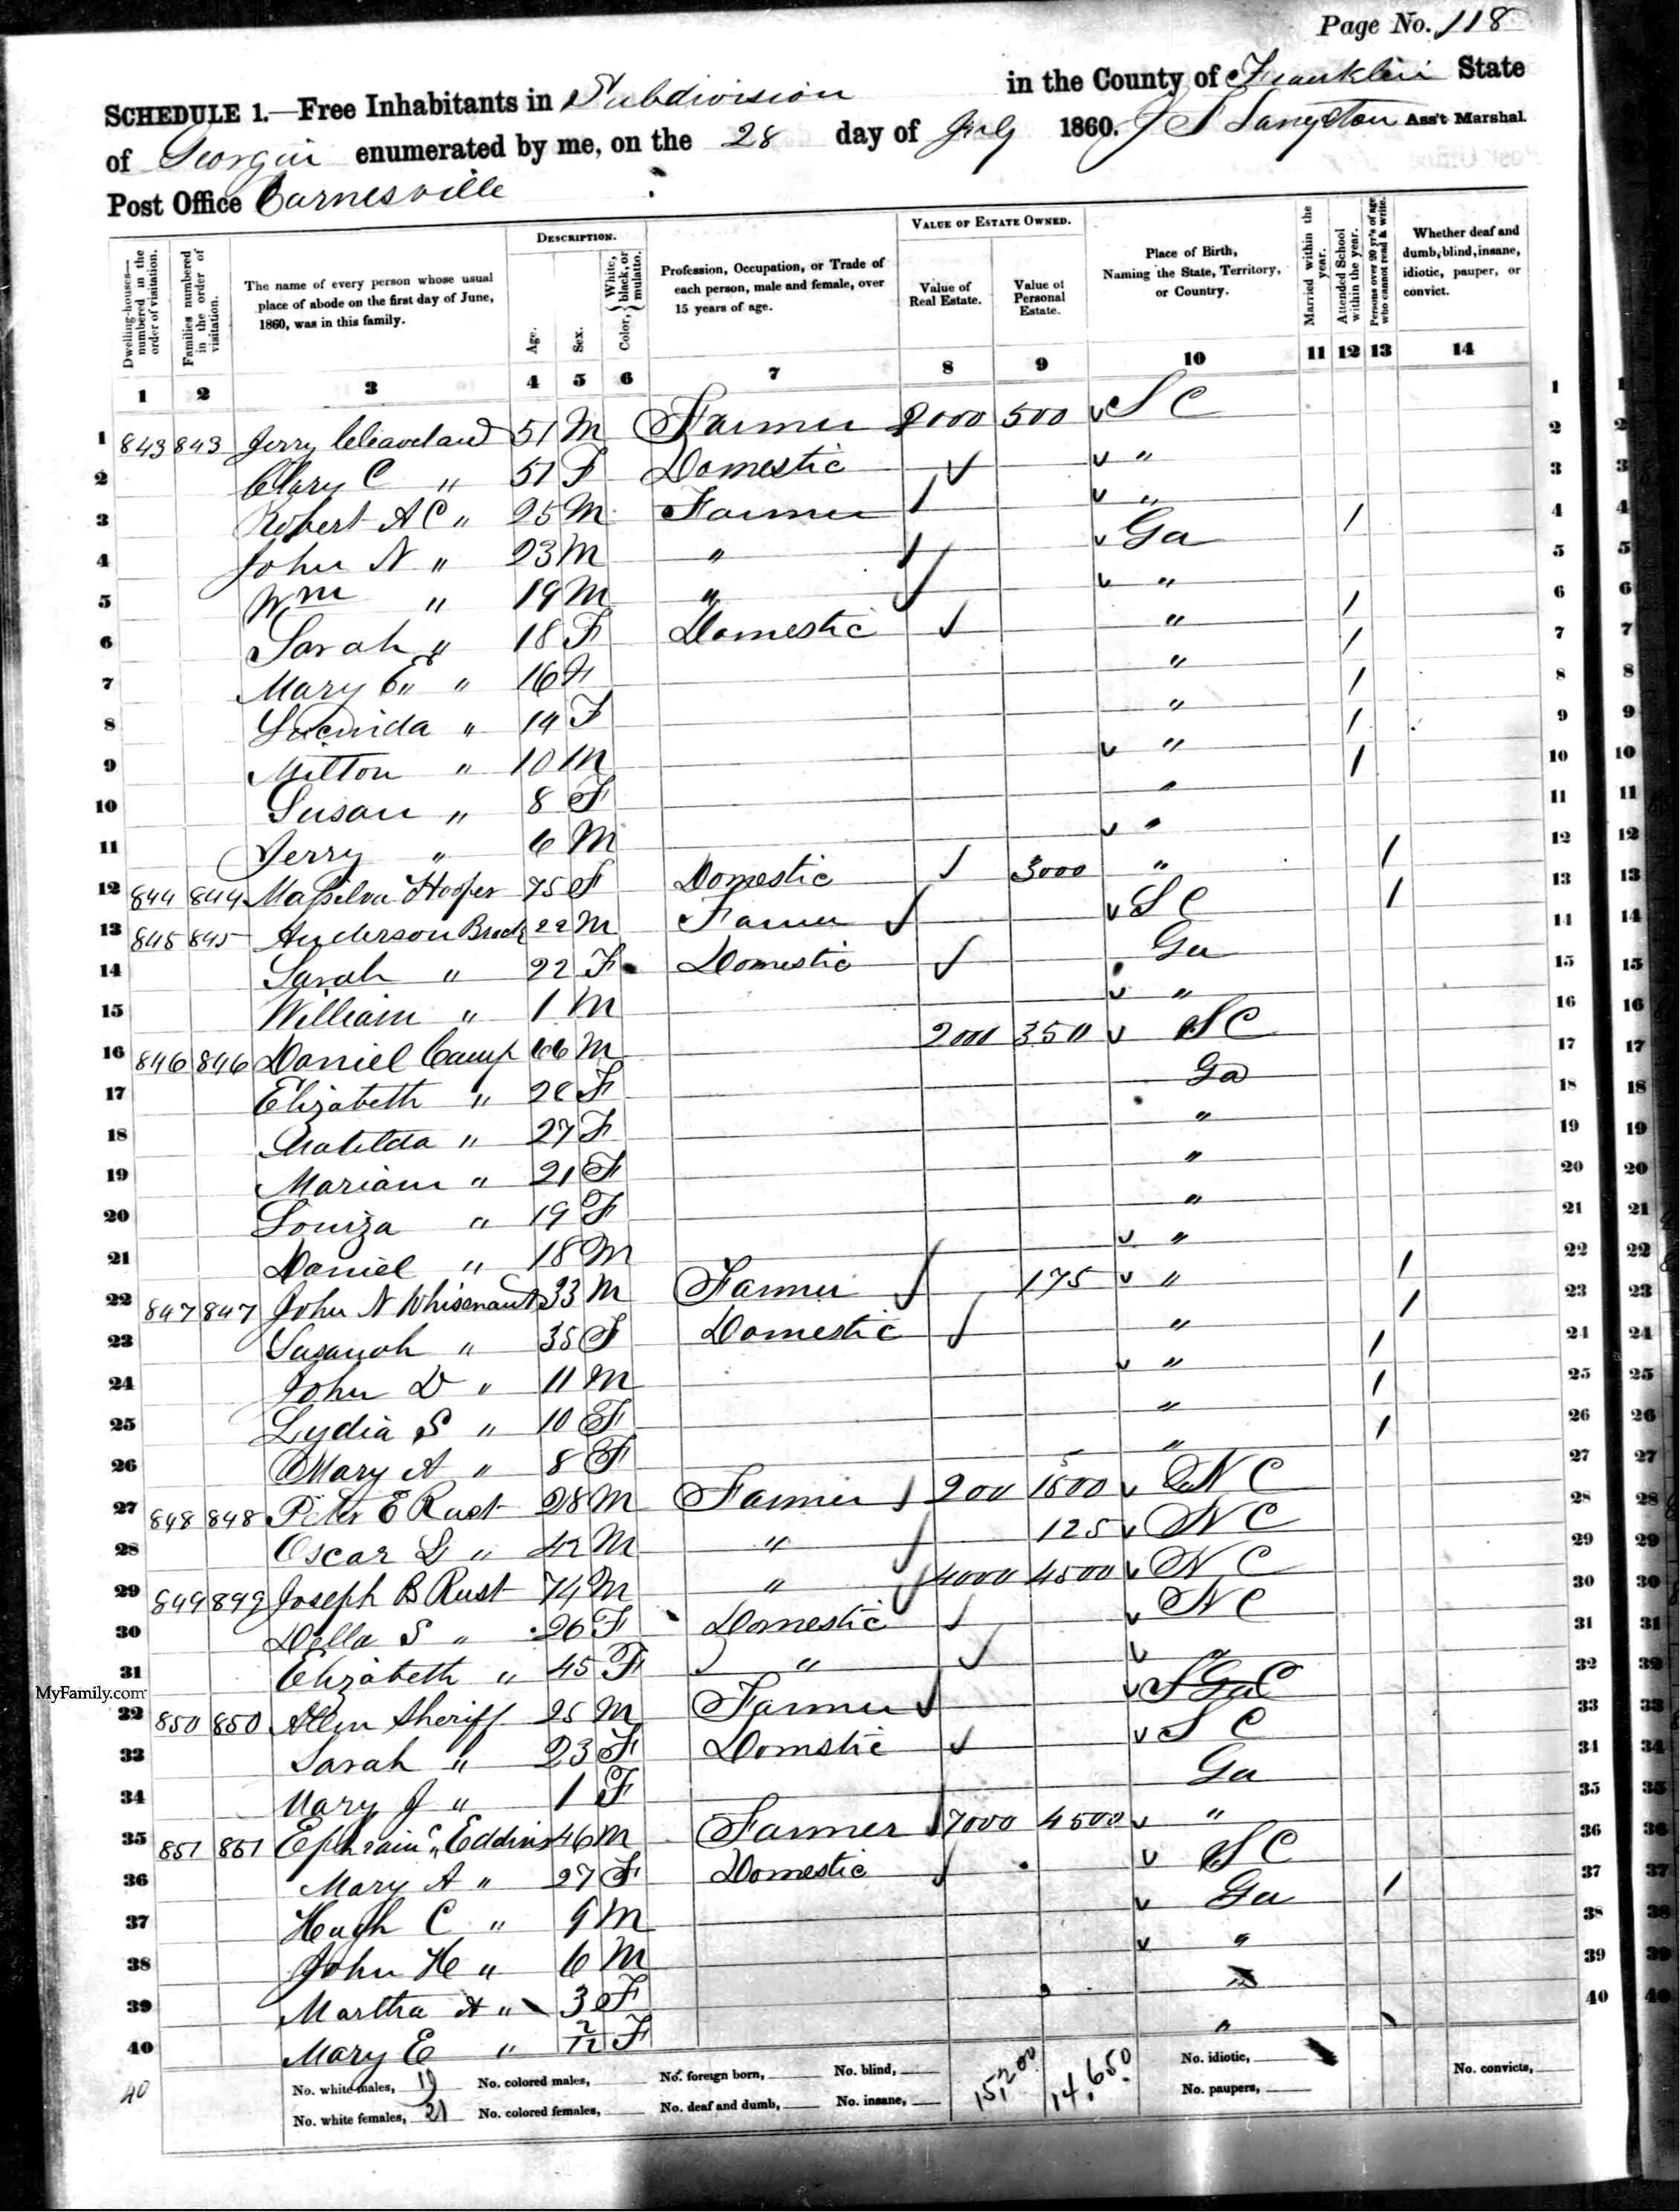 Page No. 118
SCHEDULE 1.—Free Inhabitants in Subdivision in the County of Franklin State
of Georgia enumerated by me, on the 28 day of July 1860. J S Langston Ass't Marshal.
Post Office Carnesville
Dwelling-houses—numbered in the order of visitation.
Families numbered in the order of visitation.
The name of every person whose usual place of abode on the first day of June, 1860, was in this family.
DESCRIPTION.
Age.
Sex.
Color, { White, black, or mulatto.
Profession, Occupation, or Trade of each person, male and female, over 15 years of age.
VALUE OF ESTATE OWNED.
Value of Real Estate.
Value of Personal Estate.
Place of Birth, Naming the State, Territory, or Country.
Married within the year.
Attended School within the year.
Persons over 20 yr's of age who cannot read & write.
Whether deaf and dumb, blind, insane, idiotic, pauper, or convict.
1 2 3 4 5 6 7 8 9 10 11 12 13 14
1 843 843 Jerry Cleaveland 51 M Farmer 2000 500 S C 1
2 Clary C " 51 F Domestic " 2
3 Robert A C " 25 M Farmer " 3
4 John N " 23 M " Ga / 4
5 Wm " 19 M " " 5
6 Sarah " 18 F Domestic " / 6
7 Mary E " 16 F " / 7
8 Lucinda " 14 F " / 8
9 Milton " 10 M " / 9
10 Susan " 8 F " / 10
11 Jerry " 6 M " 11
12 844 844 Hooper 75 F Domestic 3000 " / 12
13 845 845 Anderson Brock 22 M Farmer S C / 13
14 Sarah " 22 F Domestic Ga 14
15 William " 1 M " 15
16 846 846 Daniel Camp 66 M 2000 350 S C 16
17 Elizabeth " 26 F Ga 17
18 Matilda " 27 F " 18
19 Mariam " 21 F " 19
20 Louiza " 19 F " 20
21 Daniel " 18 M " 21
22 847 847 John N Whisenant 33 M Farmer 175 " / 22
23 Susanah " 35 F Domestic " / 23
24 John D " 11 M " / 24
25 Lydia S " 10 F " / 25
26 Mary A " 8 F " / 26
27 848 848 Peter E Rust 28 M Farmer 200 1500 N C 27
28 Oscar L " 42 M " 125 N C 28
29 849 849 Joseph B Rust 74 M " 4000 4500 N C 29
30 Della S " 26 F Domestic N C 30
31 Elizabeth " 45 F " " 31
32 850 850 Allen Sheriff 25 M Farmer S C 32
33 Sarah " 23 F Domstic S C 33
34 Mary J " 1 F Ga 34
35 851 851 Ephraim C Eddins 46 M Farmer 7000 4500 " 35
36 Mary A " 27 F Domestic S C 36
37 Hugh C " 9 M Ga / 37
38 John H " 6 M " 38
39 Martha A " 3 F " 39
40 Mary E " 2/12 F " 40
40
No. white males, 19 No. colored males, No. foreign born, No. blind, 15,200 14,650 No. idiotic, No. convicts,
No. white females, 21 No. colored females, No. deaf and dumb, No. insane, No. paupers,
MyFamily.com